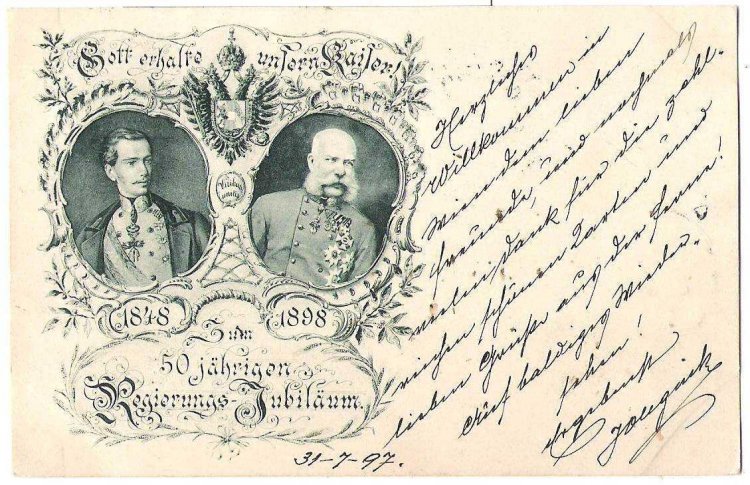 Gott erhalte unsern Kaiser!
Viribus
unitis
1848 1898
Zum
50 jährigen
Regierungs-Jubiläum.
31-7-97.
Herzliches
Willkommen in
Wien dem lieben
Freunde, und nochmals
vielen Dank für die zahl-
reichen schönen Karten und
lieben Grüße aus der Ferne!
Auf baldiges Wieder-
sehen!
Ergebenst